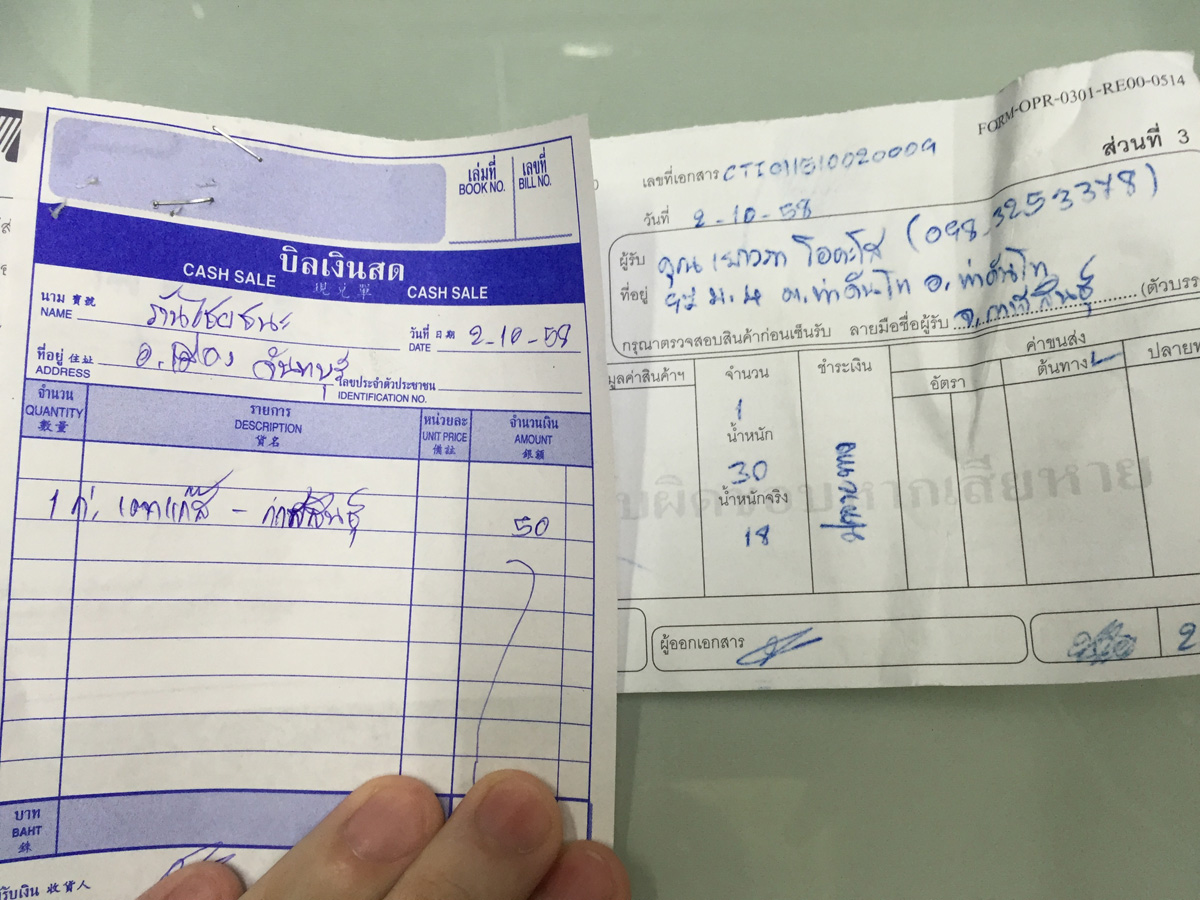 เล่มที่
BOOK NO.
เลขที่
BILL NO.
บิลเงินสด
CASH SALE
CASH SALE
นาม 寶號
NAME ร้านไชยธนะ
วันที่ 日期
DATE 2-10-58
ที่อยู่ 住址
ADDRESS อ.เมือง จันทบุรี
เลขประจำตัวประชาชน
IDENTIFICATION NO.
จำนวน
QUANTITY
數量
รายการ
DESCRIPTION
貨名
หน่วยละ
UNIT PRICE
備註
จำนวนเงิน
AMOUNT
銀額
1 ก่. เตาแก๊ส - กาฬสินธุ์ 50
บาท
BAHT
銖
รับเงิน 收貨人
FORM-OPR-0301-RE00-0514
ส่วนที่ 3
เลขที่เอกสาร
วันที่ 2-10-58
ผู้รับ คุณ (098-3253378)
ที่อยู่ ม.4 ต.ท่าคันโท อ.ท่าคันโท
จ.กาฬสินธุ์
กรุณาตรวจสอบสินค้าก่อนเซ็นรับ ลายมือชื่อผู้รับ (ตัวบรร
มูลค่าสินค้าฯ
จำนวน
ชำระเงิน
ค่าขนส่ง
อัตรา
ต้นทาง
ปลายท
1
น้ำหนัก
30
น้ำหนักจริง
18
บผิดชอบหากเสียหาย
ผู้ออกเอกสาร
2